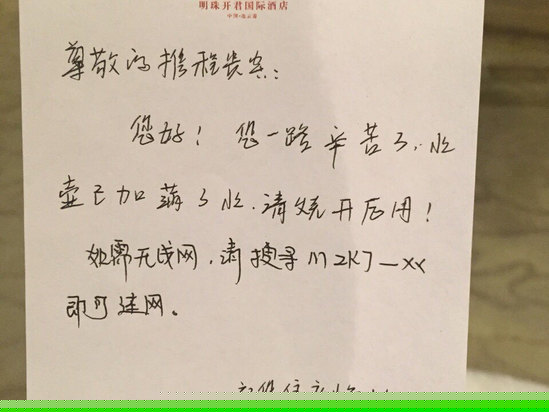 明珠开君国际酒店
中国·连云港
尊敬的携程贵宾：
您好！您一路辛苦了，水
壶已加满了水，请烧开后用！
如需无线网，请搜寻MZKJ—XX
即可连网。